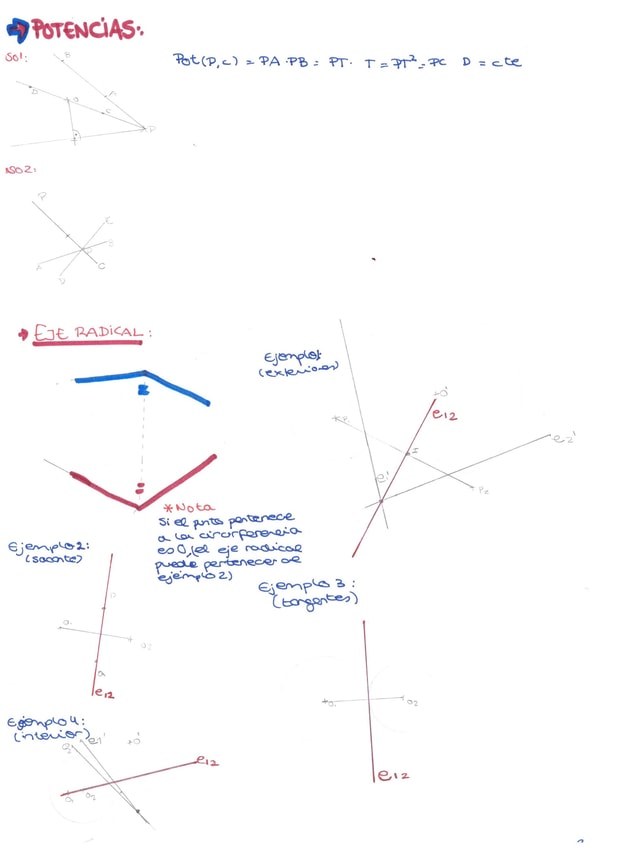 POTENCIAS:.
SO1:
Pot(P,c) = PA·PB = PT· T = PT²=PC D = cte
B
D
A
O
C
P
T
NO2:
P
K
B
A
V
C
EJE RADICAL:
Ejemplo1
(exteriores)
O'
e12
e2'
e1'
I
P2
*Nota
Si el punto pertenece
a la circunferencia
es 0, (el eje radical
puede pertenecer al
ejemplo 2)
Ejemplo 2:
(secante)
O1
O2
e12
Ejemplo 3:
(tangentes)
O1
O2
e12
Ejemplo 4:
(interior)
e2'
e1'
O'
e12
O1
O2